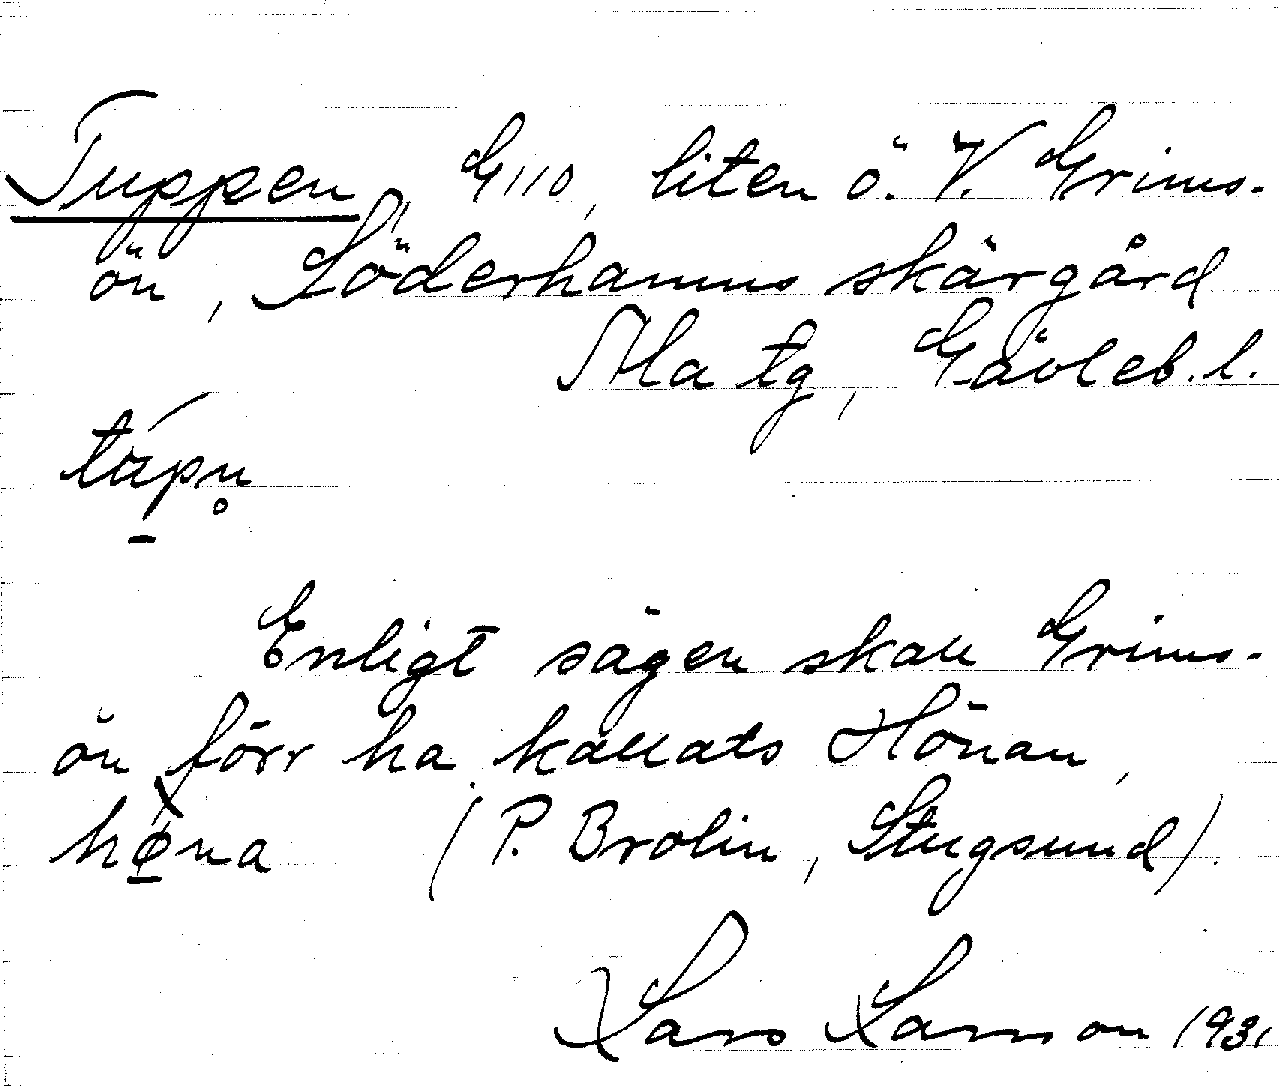 Tuppen, G110, liten ö. V. Grims-
ön, Söderhamns skärgård
Ala tg, Gävleb. l.
tápn̥
Enligt sägen skall Grims-
ön förr ha kallats Hönan,
hø̀na (P. Brolin, Stugsund).
Lars Larsson 1931